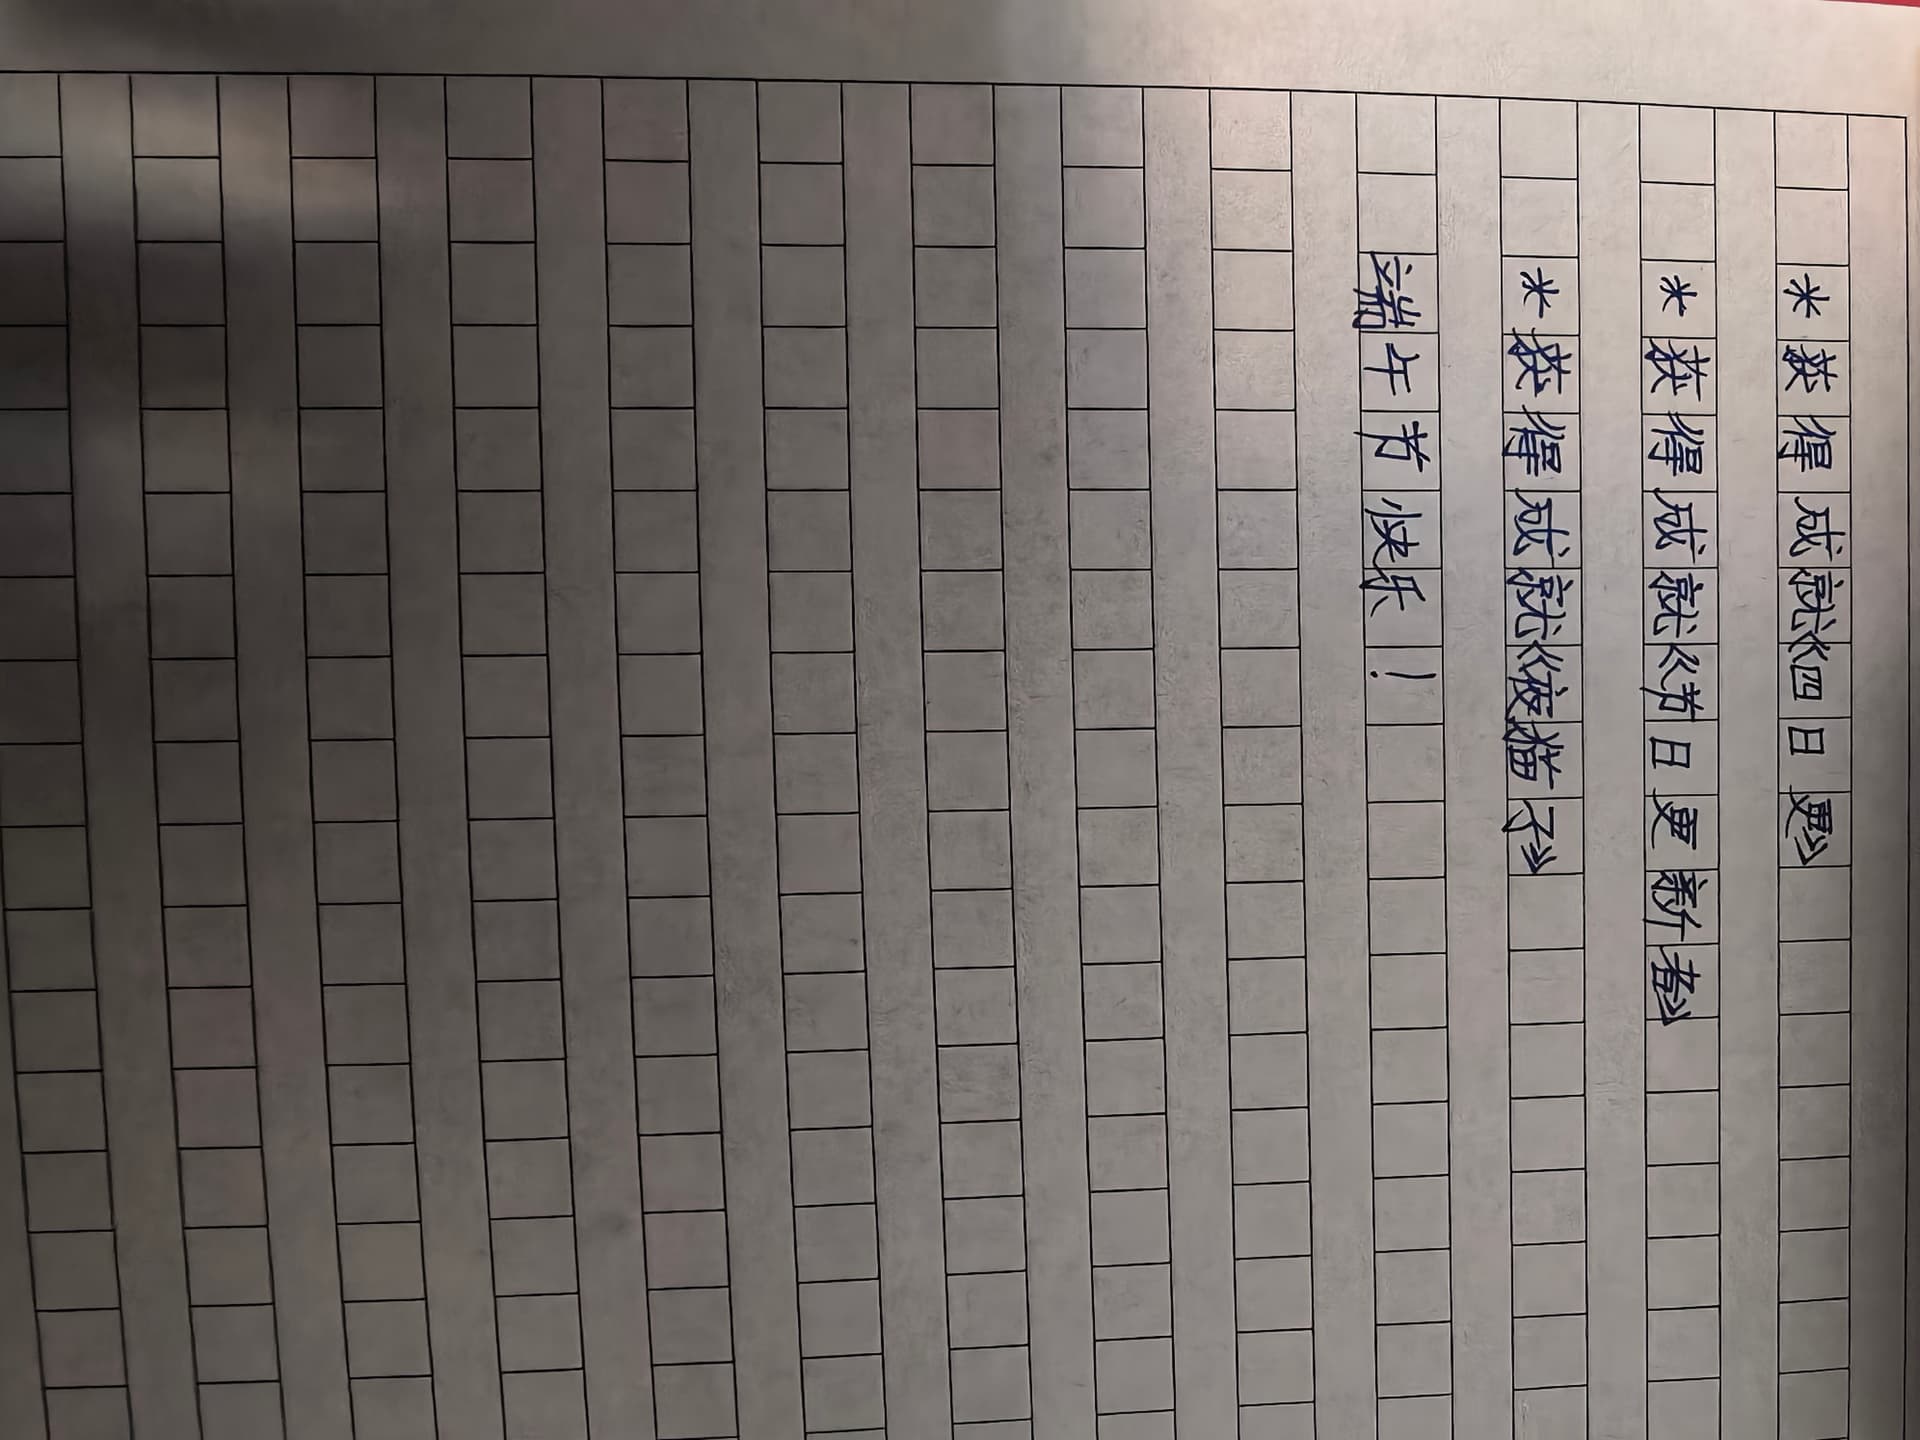 *获得成就《四日更》
*获得成就《节日更新者》
*获得成就《夜猫子》
端午节快乐！